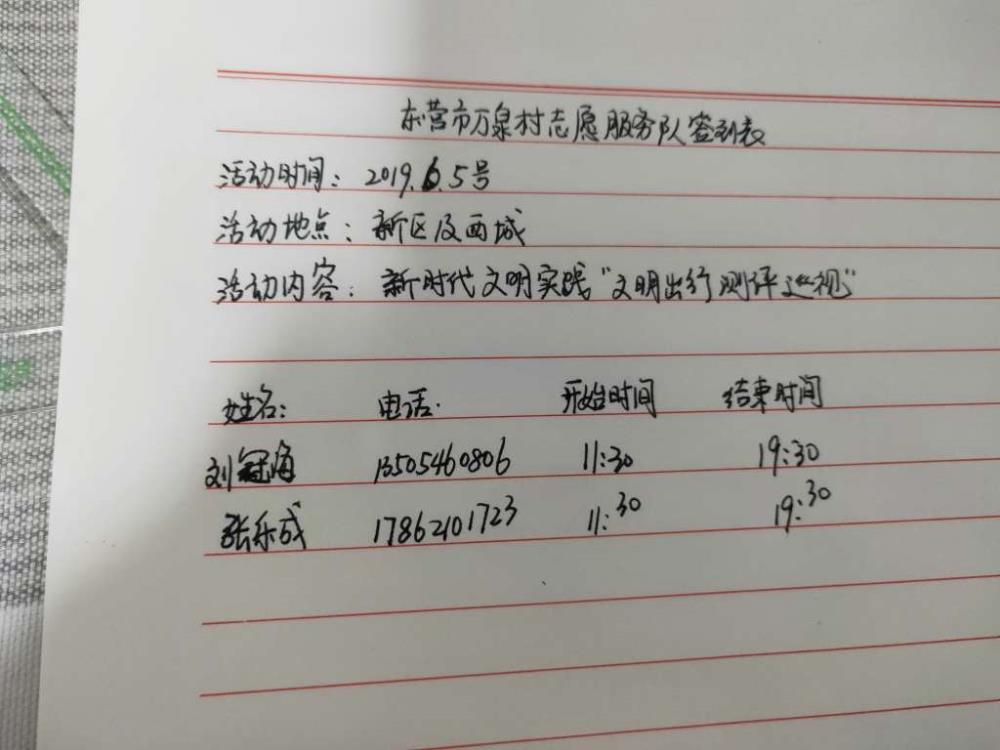 东营市万泉村志愿服务队签到表
活动时间：2019.6.5号
活动地点：新区及西城
活动内容：新时代文明实践“文明出行测评巡视”
姓名： 电话. 开始时间 结束时间
刘冠海 13505460806 11:30 19:30
张乐成 17862101723 11:30 19:30